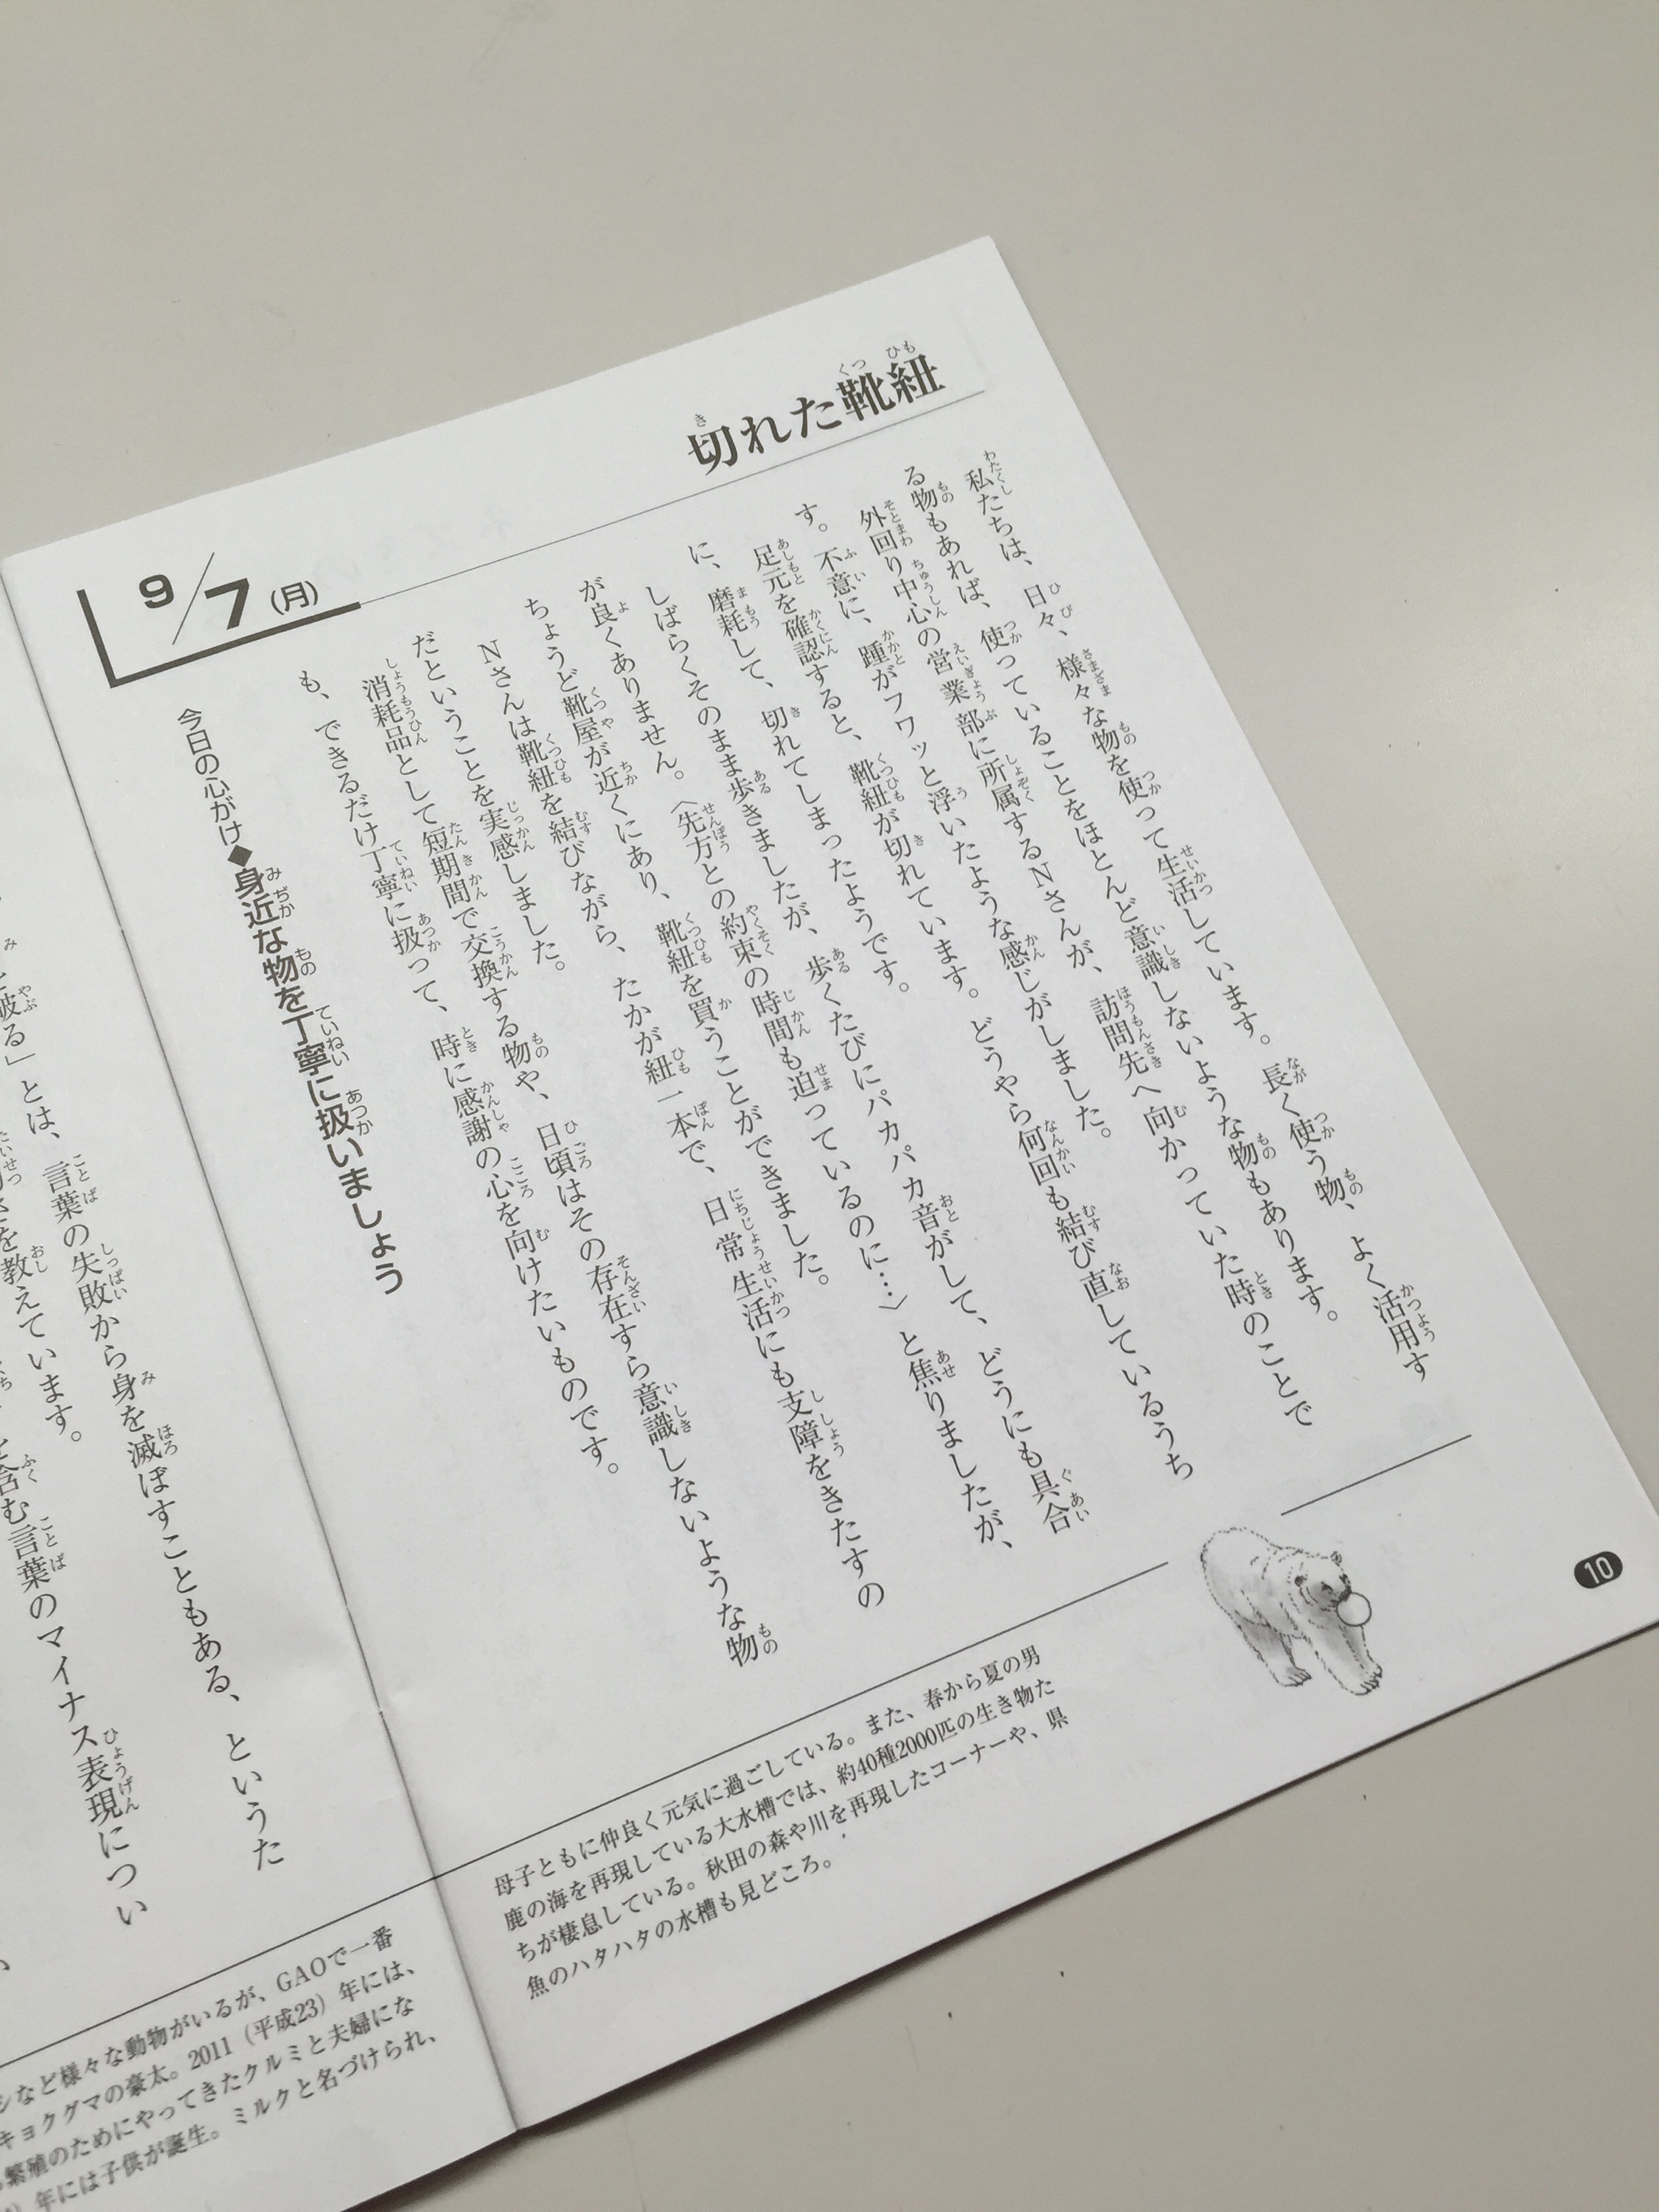 切れた靴紐
私たちは、日々、様々な物を使って生活しています。長く使う物、よく活用す
る物もあれば、使っていることをほとんど意識しないような物もあります。
外回り中心の営業部に所属するNさんが、訪問先へ向かっていた時のことで
す。不意に、踵がフワッと浮いたような感じがしました。
足元を確認すると、靴紐が切れています。どうやら何回も結び直しているうち
に、磨耗して、切れてしまったようです。
しばらくそのまま歩きましたが、歩くたびにパカパカ音がして、どうにも具合
が良くありません。〈先方との約束の時間も迫っているのに…〉と焦りましたが、
ちょうど靴屋が近くにあり、靴紐を買うことができました。
Nさんは靴紐を結びながら、たかが紐一本で、日常生活にも支障をきたすの
だということを実感しました。
消耗品として短期間で交換する物や、日頃はその存在すら意識しないような物
も、できるだけ丁寧に扱って、時に感謝の心を向けたいものです。
9/7(月)
今日の心がけ◆身近な物を丁寧に扱いましょう
10
母子ともに仲良く元気に過ごしている。また、春から夏の男
鹿の海を再現している大水槽では、約40種2000匹の生き物た
ちが棲息している。秋田の森や川を再現したコーナーや、県
魚のハタハタの水槽も見どころ。
言葉の失敗から身を滅ぼすこともある、というた
破る」とは、
を教えています。
含む言葉のマイナス表現につい
など様々な動物がいるが、GAOで一番
キョクグマの豪太。2011（平成23）年には、
繁殖のためにやってきたクルミと夫婦にな
年には子供が誕生。ミルクと名づけられ、